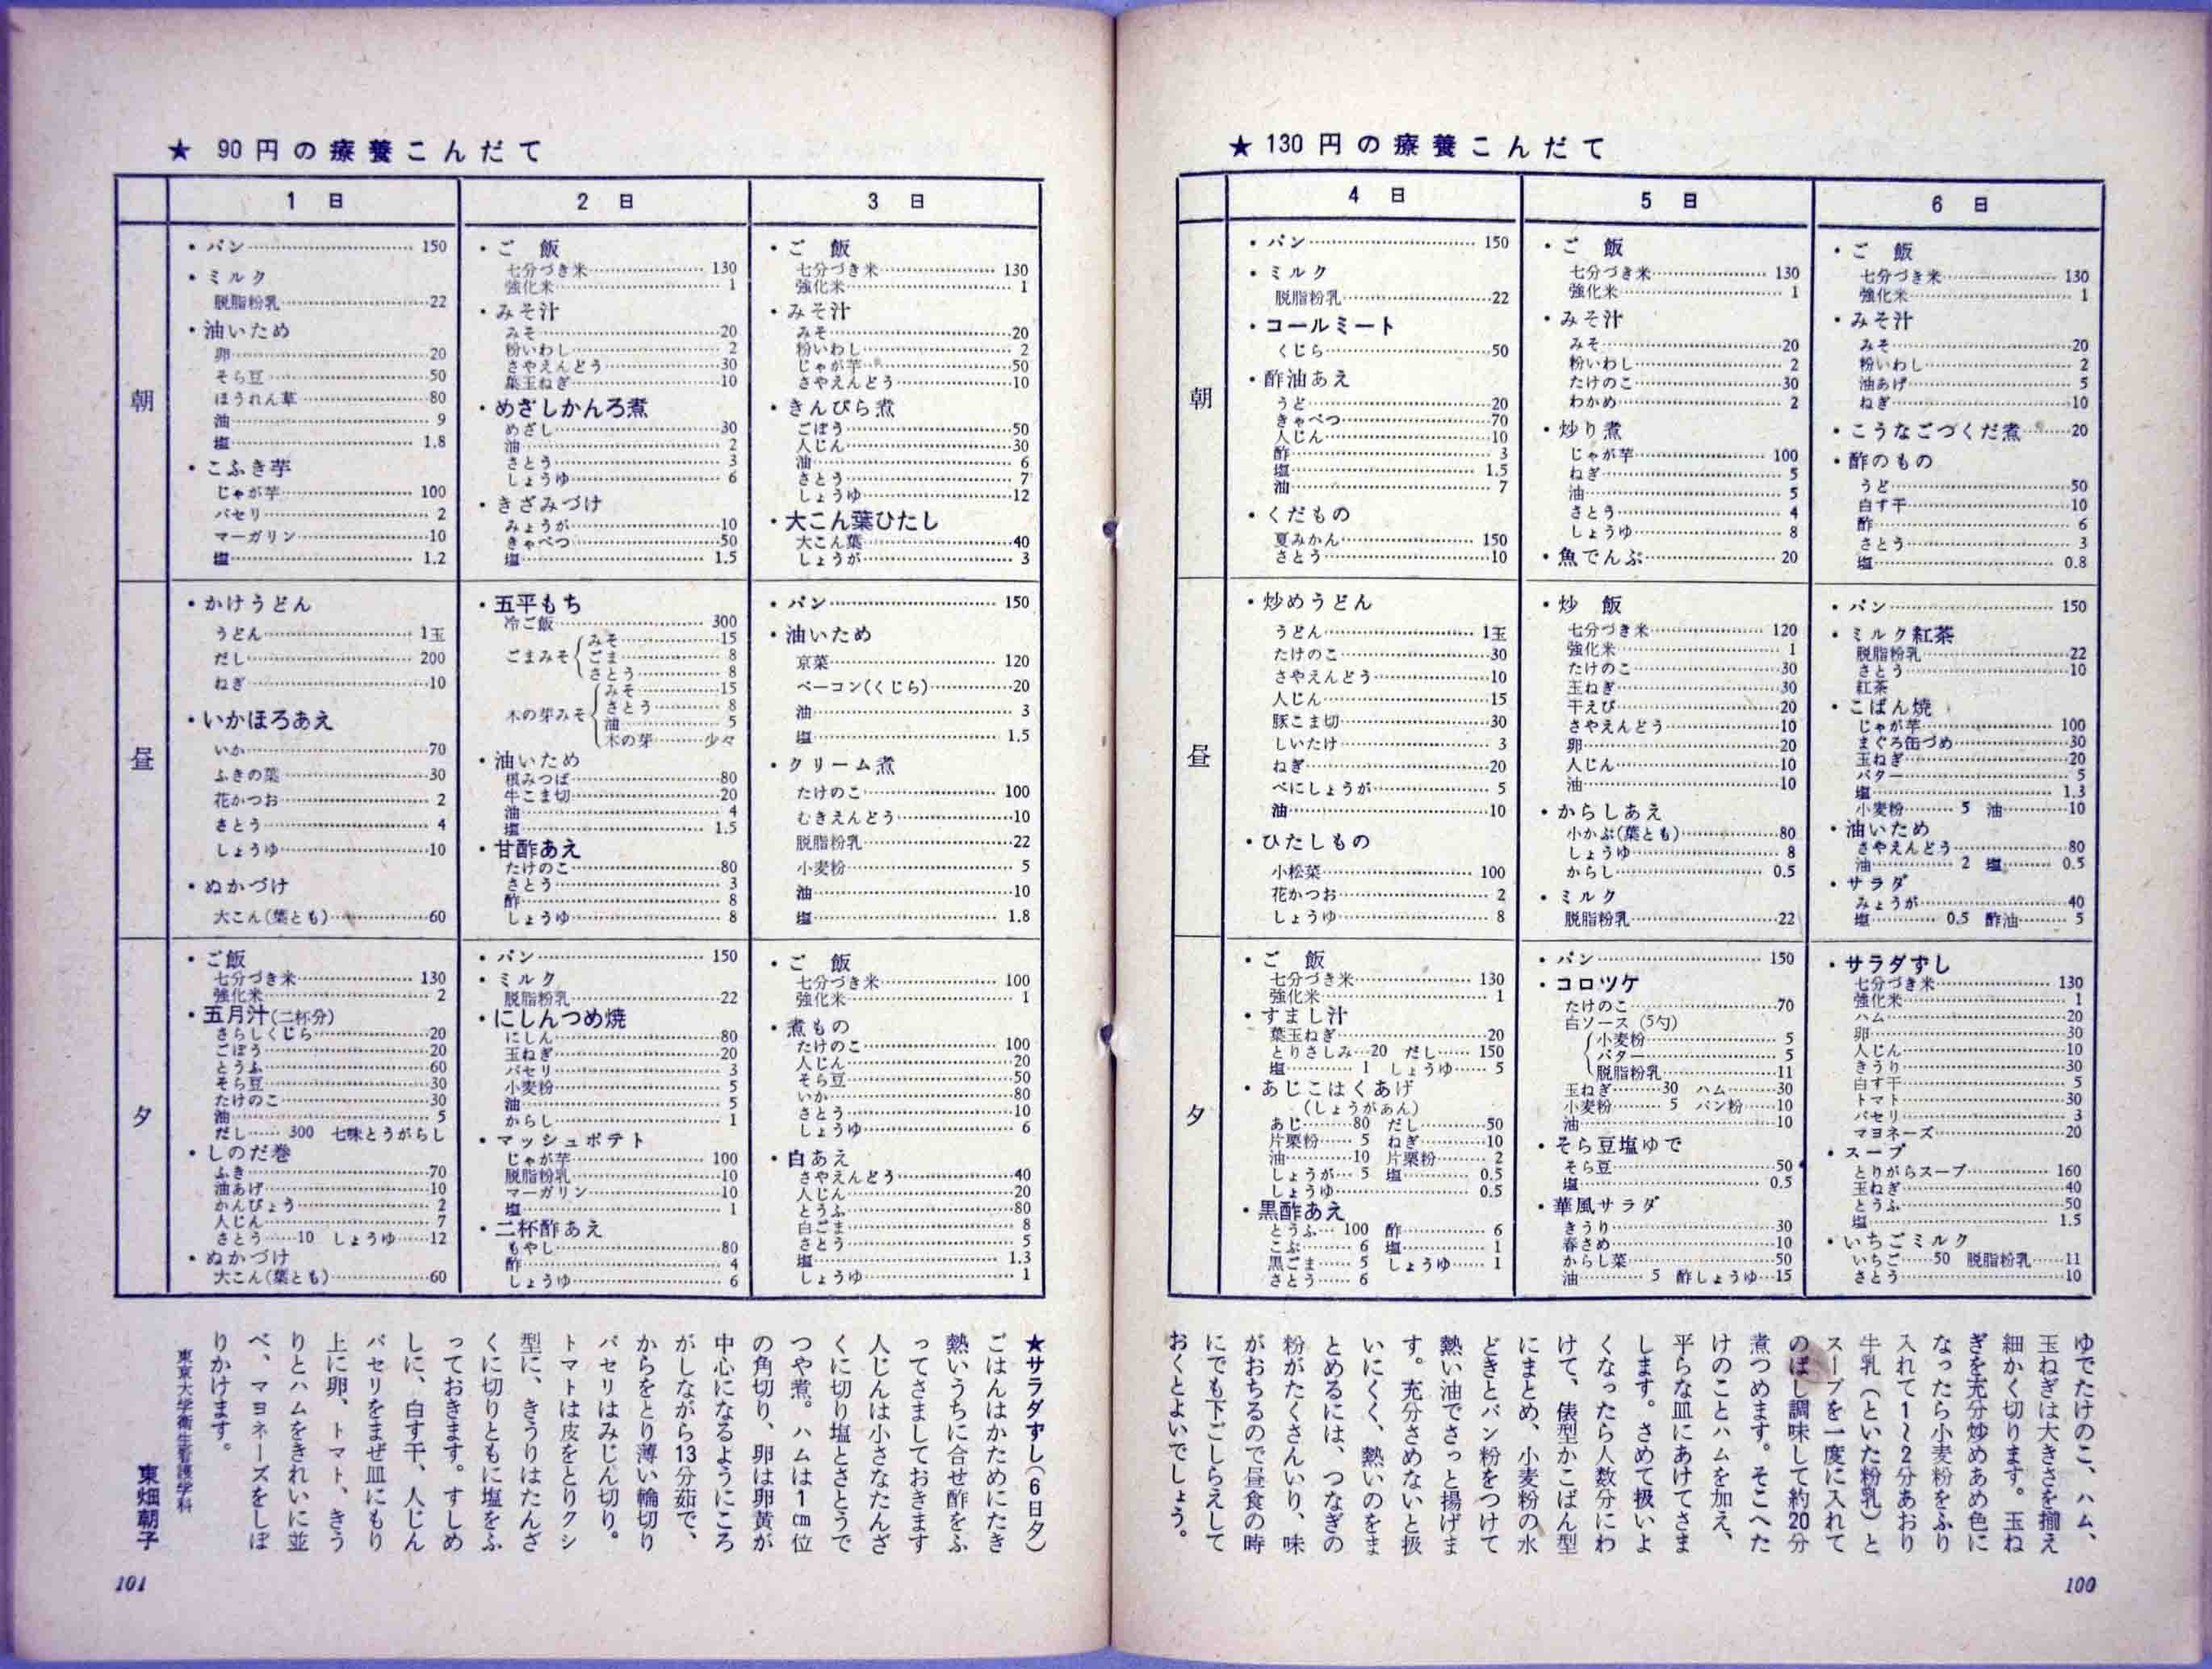 ★ 130円の療養こんだて
4 日
朝
・パン…… 150
・ミルク
脱脂粉乳……22
・コールミート
くじら……50
・酢油あえ
うど……20
きゃべつ……70
人じん……10
酢…… 3
塩…… 1.5
油…… 7
・くだもの
夏みかん…… 150
さとう……10
昼
・炒めうどん
うどん…… 1玉
たけのこ……30
さやえんどう……10
人じん……15
豚こま切……30
しいたけ…… 3
ねぎ……20
べにしょうが…… 5
油……10
・ひたしもの
小松菜…… 100
花かつお…… 2
しょうゆ…… 8
夕
・ご 飯
七分づき米…… 130
強化米…… 1
・すまし汁
葉玉ねぎ……20
とりさしみ…20 だし…… 150
塩…… 1 しょうゆ…… 5
・あじこはくあげ
(しょうがあん)
あじ……80 だし……50
片栗粉…… 5 ねぎ……10
油……10 片栗粉…… 2
しょうが… 5 塩…… 0.5
しょうゆ…… 0.5
・黒酢あえ
とうふ… 100 酢…… 6
こぶ…… 6 塩…… 1
黒ごま…… 5 しょうゆ…… 1
さとう…… 6
5 日
・ご 飯
七分づき米…… 130
強化米…… 1
・みそ汁
みそ……20
粉いわし…… 2
たけのこ……30
わかめ…… 2
・炒り煮
じゃが芋…… 100
ねぎ…… 5
油…… 5
さとう…… 4
しょうゆ…… 8
・魚でんぶ…… 20
・炒 飯
七分づき米…… 120
強化米…… 1
たけのこ……30
玉ねぎ……30
干えび……20
さやえんどう……10
卵……20
人じん……10
油……10
・からしあえ
小かぶ(葉とも)……80
しょうゆ…… 8
からし…… 0.5
・ミルク
脱脂粉乳……22
・パン…… 150
・コロツケ
たけのこ……70
白ソース (5勺)
小麦粉…… 5
バター…… 5
脱脂粉乳……11
玉ねぎ……30 ハム……30
小麦粉…… 5 パン粉……10
油……10
・そら豆塩ゆで
そら豆……50
塩…… 0.5
・華風サラダ
きうり……30
春さめ……10
からし菜……50
油…… 5 酢しょうゆ…15
6 日
・ご 飯
七分づき米…… 130
強化米…… 1
・みそ汁
みそ……20
粉いわし…… 2
油あげ…… 5
ねぎ……10
・こうなごづくだ煮……20
・酢のもの
うど……50
白す干……10
酢…… 6
さとう…… 3
塩…… 0.8
・パン…… 150
・ミルク紅茶
脱脂粉乳……22
さとう……10
紅茶
・こばん焼
じゃが芋…… 100
まぐろ缶づめ……30
玉ねぎ……20
バター…… 5
塩…… 1.3
小麦粉…… 5 油……10
・油いため
さやえんどう……80
油…… 2 塩…… 0.5
・サラダ
みょうが……40
塩…… 0.5 酢油…… 5
・サラダずし
七分づき米…… 130
強化米…… 1
ハム……20
卵……30
人じん……10
きうり……30
白す干…… 5
トマト……30
パセリ…… 3
マヨネーズ……20
・スープ
とりがらスープ…… 160
玉ねぎ……40
とうふ……50
塩…… 1.5
・いちごミルク
いちご……50 脱脂粉乳……11
さとう……10
ゆでたけのこ、ハム、
玉ねぎは大きさを揃え
細かく切ります。玉ね
ぎを充分炒めあめ色に
なったら小麦粉をふり
入れて1〜2分あおり
牛乳(といた粉乳)と
スープを一度に入れて
のばし調味して約20分
煮つめます。そこへた
けのことハムを加え、
平らな皿にあけてさま
します。さめて扱いよ
くなったら人数分にわ
けて、俵型かこばん型
にまとめ、小麦粉の水
どきとパン粉をつけて
熱い油でさっと揚げま
す。充分さめないと扱
いにくく、熱いのをま
とめるには、つなぎの
粉がたくさんいり、味
がおちるので昼食の時
にでも下ごしらえして
おくとよいでしょう。
100
★ 90円の療養こんだて
1 日
朝
・パン…… 150
・ミルク
脱脂粉乳……22
・油いため
卵……20
そら豆……50
ほうれん草……80
油…… 9
塩…… 1.8
・こふき芋
じゃが芋…… 100
パセリ…… 2
マーガリン……10
塩…… 1.2
昼
・かけうどん
うどん…… 1玉
だし…… 200
ねぎ……10
・いかほろあえ
いか……70
ふきの葉……30
花かつお…… 2
さとう…… 4
しょうゆ……10
・ぬかづけ
大こん(葉とも)……60
夕
・ご飯
七分づき米…… 130
強化米…… 2
・五月汁(二杯分)
さらしくじら……20
ごぼう……20
とうふ……60
そら豆……30
たけのこ……30
油…… 5
だし…… 300 七味とうがらし
・しのだ巻
ふき……70
油あげ……10
かんぴょう…… 2
人じん…… 7
さとう……10 しょうゆ……12
・ぬかづけ
大こん(葉とも)……60
2 日
・ご 飯
七分づき米…… 130
強化米…… 1
・みそ汁
みそ……20
粉いわし…… 2
さやえんどう……30
葉玉ねぎ……10
・めざしかんろ煮
めざし……30
油…… 2
さとう…… 3
しょうゆ…… 6
・きざみづけ
みょうが……10
きゃべつ……50
塩…… 1.5
・五平もち
冷ご飯…… 300
ごまみそ
みそ……15
ごま…… 8
さとう…… 8
木の芽みそ
みそ……15
さとう…… 8
油…… 5
木の芽……少々
・油いため
根みつば……80
牛こま切……20
油…… 4
塩…… 1.5
・甘酢あえ
たけのこ……80
さとう…… 3
酢…… 8
しょうゆ…… 8
・パン…… 150
・ミルク
脱脂粉乳……22
・にしんつめ焼
にしん……80
玉ねぎ……20
パセリ…… 3
小麦粉…… 5
油…… 5
からし…… 1
・マッシュポテト
じゃが芋…… 100
脱脂粉乳……10
マーガリン……10
塩…… 1
・二杯酢あえ
もやし……80
酢…… 4
しょうゆ…… 6
3 日
・ご 飯
七分づき米…… 130
強化米…… 1
・みそ汁
みそ……20
粉いわし…… 2
じゃが芋……50
さやえんどう……10
・きんぴら煮
ごぼう……50
人じん……30
油…… 6
さとう…… 7
しょうゆ……12
・大こん葉ひたし
大こん葉……40
しょうが…… 3
・パン…… 150
・油いため
京菜…… 120
ベーコン(くじら)……20
油…… 3
塩…… 1.5
・クリーム煮
たけのこ…… 100
むきえんどう……10
脱脂粉乳……22
小麦粉…… 5
油……10
塩…… 1.8
・ご 飯
七分づき米…… 100
強化米…… 1
・煮もの
たけのこ…… 100
人じん……20
そら豆……50
いか……80
さとう……10
しょうゆ…… 6
・白あえ
さやえんどう……40
人じん……20
とうふ……80
白ごま…… 8
さとう…… 5
塩…… 1.3
しょうゆ…… 1
★サラダずし(6日夕)
ごはんはかためにたき
熱いうちに合せ酢をふ
ってさましておきます
人じんは小さなたんざ
くに切り塩とさとうで
つや煮。ハムは1㎝位
の角切り、卵は卵黄が
中心になるようにころ
がしながら13分茹で、
からをとり薄い輪切り
パセリはみじん切り。
トマトは皮をとりクシ
型に、きうりはたんざ
くに切りともに塩をふ
っておきます。すしめ
しに、白す干、人じん
パセリをまぜ皿にもり
上に卵、トマト、きう
りとハムをきれいに並
べ、マヨネーズをしぼ
りかけます。
東京大学衛生看護学科
東畑朝子
101